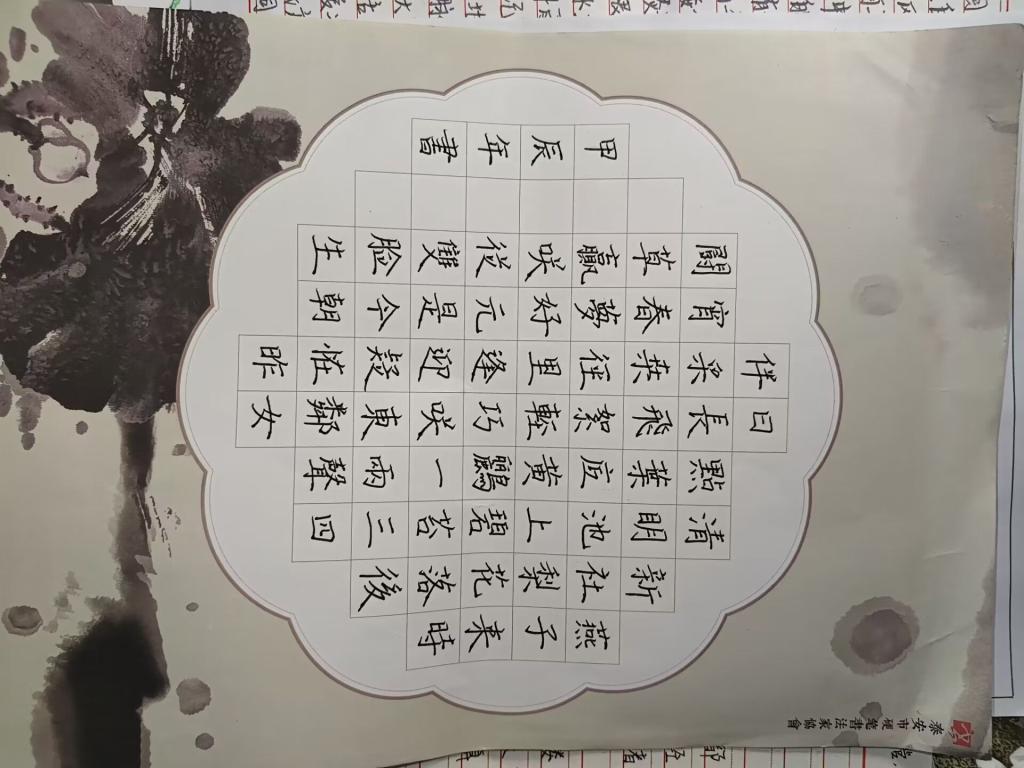 燕子来時
新社梨花落後
清明池上碧苔三四
點葉底黃鸝一兩聲
日長飛絮輕巧咲東鄰女
伴采桒徑里逢迎疑怪昨
宵春夢好元是今朝
鬪草贏咲從雙臉生
甲辰年書
泰安市硬笔书法家協會